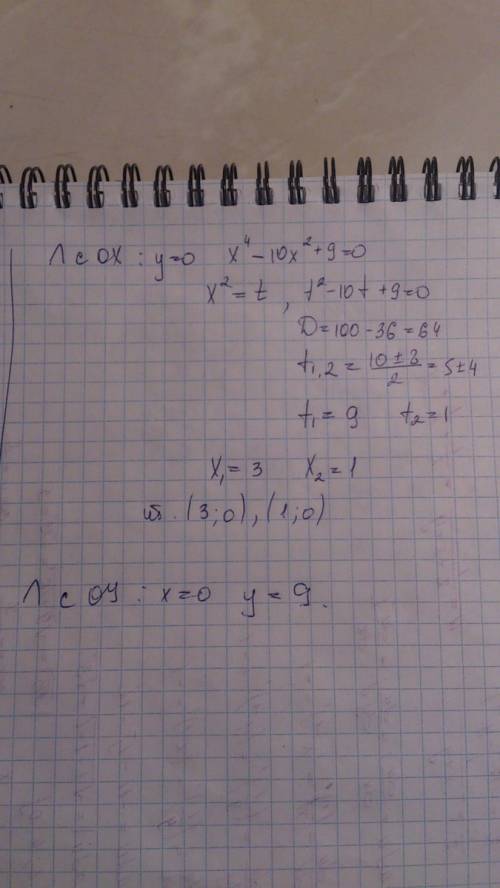 ∩ с OX : y=0 x⁴-10x²+9=0
x² = t , t²-10t+9=0
D=100-36=64
t₁,₂ = (10±8)/2 = 5±4
t₁ = 9 t₂=1
x₁= 3 x₂=1
т. (3;0),(1;0)
∩ с OY : x=0 y = 9.